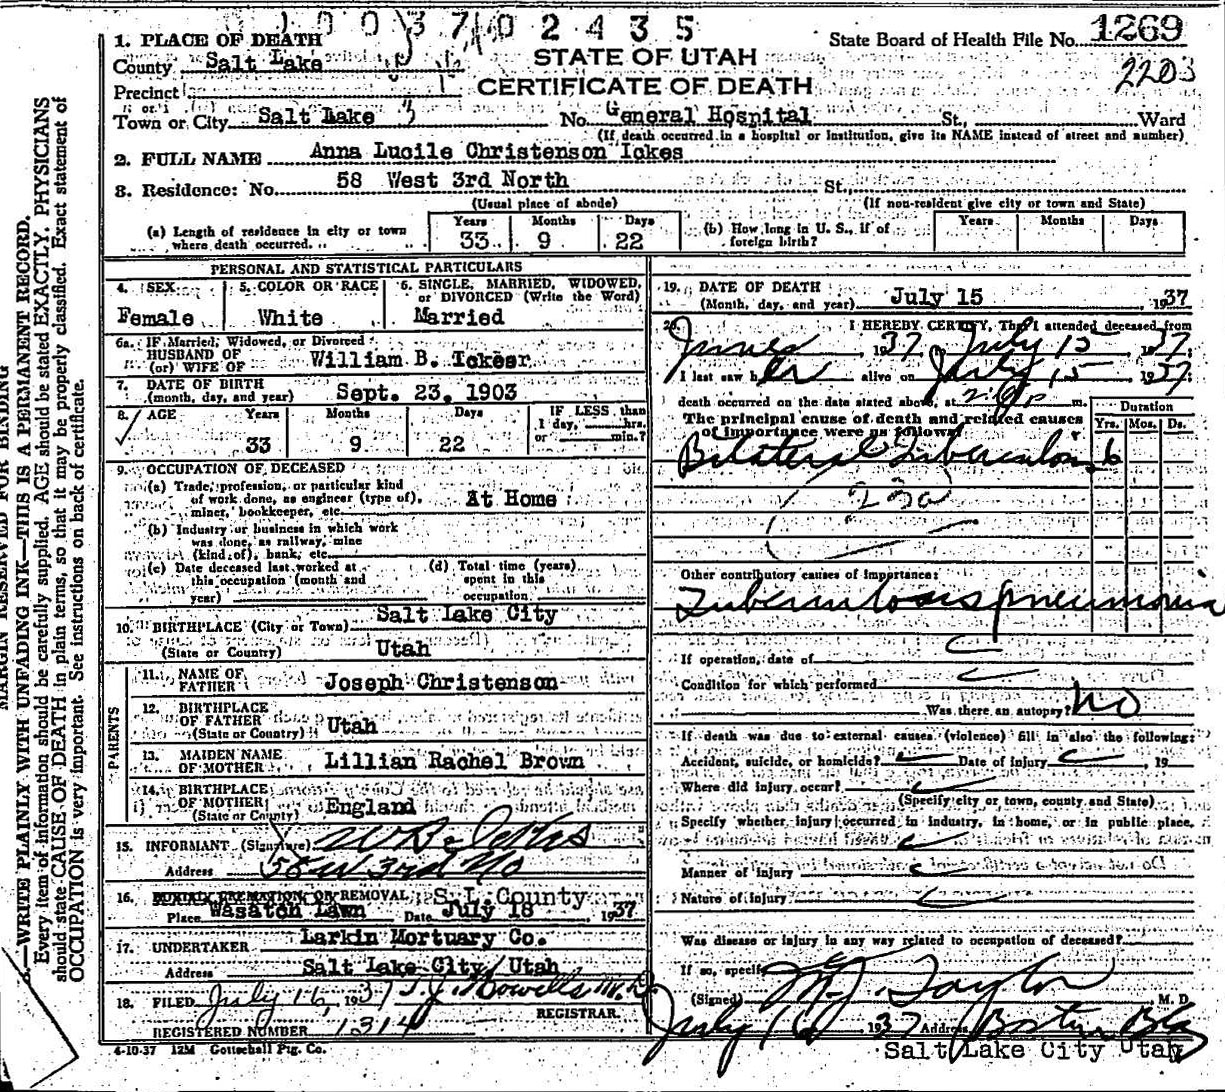 1 0 0 3 7 0 2 4 3 5
1. PLACE OF DEATH
State Board of Health File No. 1269
County Salt Lake
STATE OF UTAH
2203
Precinct
CERTIFICATE OF DEATH
or
Town or City Salt Lake 3 No. General Hospital St., Ward
(If death occurred in a hospital or institution, give its NAME instead of street and number)
2. FULL NAME Anna Lucile Christenson Ickes
3. Residence: No. 58 West 3rd North St.,
(Usual place of abode) (If non-resident give city or town and State)
(a) Length of residence in city or town where death occurred. Years 33 Months 9 Days 22
(b) How long in U. S., if of foreign birth? Years Months Days
MARGIN RESERVED FOR BINDING
—WRITE PLAINLY WITH UNFADING INK—THIS IS A PERMANENT RECORD.
Every item of information should be carefully supplied. AGE should be stated EXACTLY. PHYSICIANS
should state CAUSE OF DEATH in plain terms, so that it may be properly classified. Exact statement of
OCCUPATION is very important. See instructions on back of certificate.
PERSONAL AND STATISTICAL PARTICULARS
4. SEX 5. COLOR OR RACE 6. SINGLE, MARRIED, WIDOWED,
or DIVORCED (Write the Word)
Female White Married
6a. IF Married, Widowed, or Divorced
HUSBAND OF
(or) WIFE OF William B. Ickes
7. DATE OF BIRTH
(month, day, and year) Sept. 23, 1903
8. AGE Years Months Days IF LESS than
1 day, hrs.
or min.?
33 9 22
9. OCCUPATION OF DECEASED
(a) Trade, profession, or particular kind
of work done, as engineer (type of),
miner, bookkeeper, etc. At Home
(b) Industry or business in which work
was done, as railway, mine
(kind of), bank, etc.
(c) Date deceased last worked at
this occupation (month and
year)
(d) Total time (years)
spent in this
occupation
10. BIRTHPLACE (City or Town) Salt Lake City
(State or Country) Utah
PARENTS
11. NAME OF
FATHER Joseph Christenson
12. BIRTHPLACE
OF FATHER
(State or Country) Utah
13. MAIDEN NAME
OF MOTHER Lillian Rachel Brown
14. BIRTHPLACE
OF MOTHER
(State or County) England
15. INFORMANT (Signature) W B Ickes
Address 58 W 3rd No
16. BURIAL CREMATION OR REMOVAL S.L. County
Place Wasatch Lawn Date July 18 1937
17. UNDERTAKER Larkin Mortuary Co.
Address Salt Lake City, Utah
18. FILED July 16, 1937 T.J. Howells M.D.
REGISTRAR.
REGISTERED NUMBER 1314
4-10-37 12M Gottschall Ptg. Co.
19. DATE OF DEATH
(Month, day, and year) July 15 1937
20. I HEREBY CERTIFY, That I attended deceased from
1937 July 15, 1937
I last saw her alive on July 15 1937
death occurred on the date stated above, at m.
The principal cause of death and related causes
of importance were as follows:
Duration
Yrs. Mos. Ds.
Bilateral Tuberculosis 6
23a
Other contributory causes of importance:
Tuberculosis pneumonia
If operation, date of
Condition for which performed
Was there an autopsy? No
If death was due to external causes (violence) fill in also the following:
Accident, suicide, or homicide? Date of injury , 19
Where did injury occur?
(Specify city or town, county and State)
Specify whether injury occurred in industry, in home, or in public place,
Manner of injury
Nature of injury
Was disease or injury in any way related to occupation of deceased?
If so, specify
(Signed) M.J. Taylor M. D.
July 16, 1937 Address Boston Bldg
Salt Lake City Utah